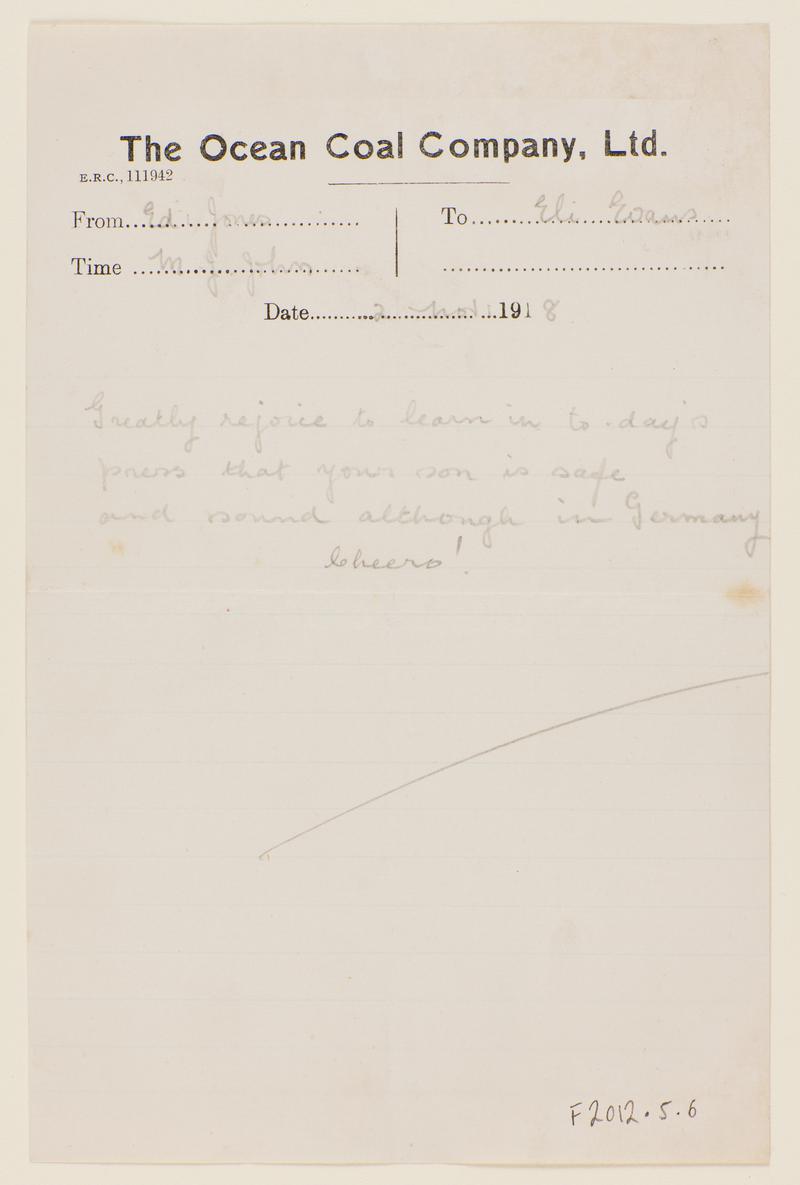 The Ocean Coal Company, Ltd.
E.R.C., 111942
From Ed. Jones To Eli Evans
Time M J John
Date 2 Nov 1918
Greatly rejoice to learn in to-day's
press that your son is safe
and sound although in Germany
Cheers!
F2012.5.6